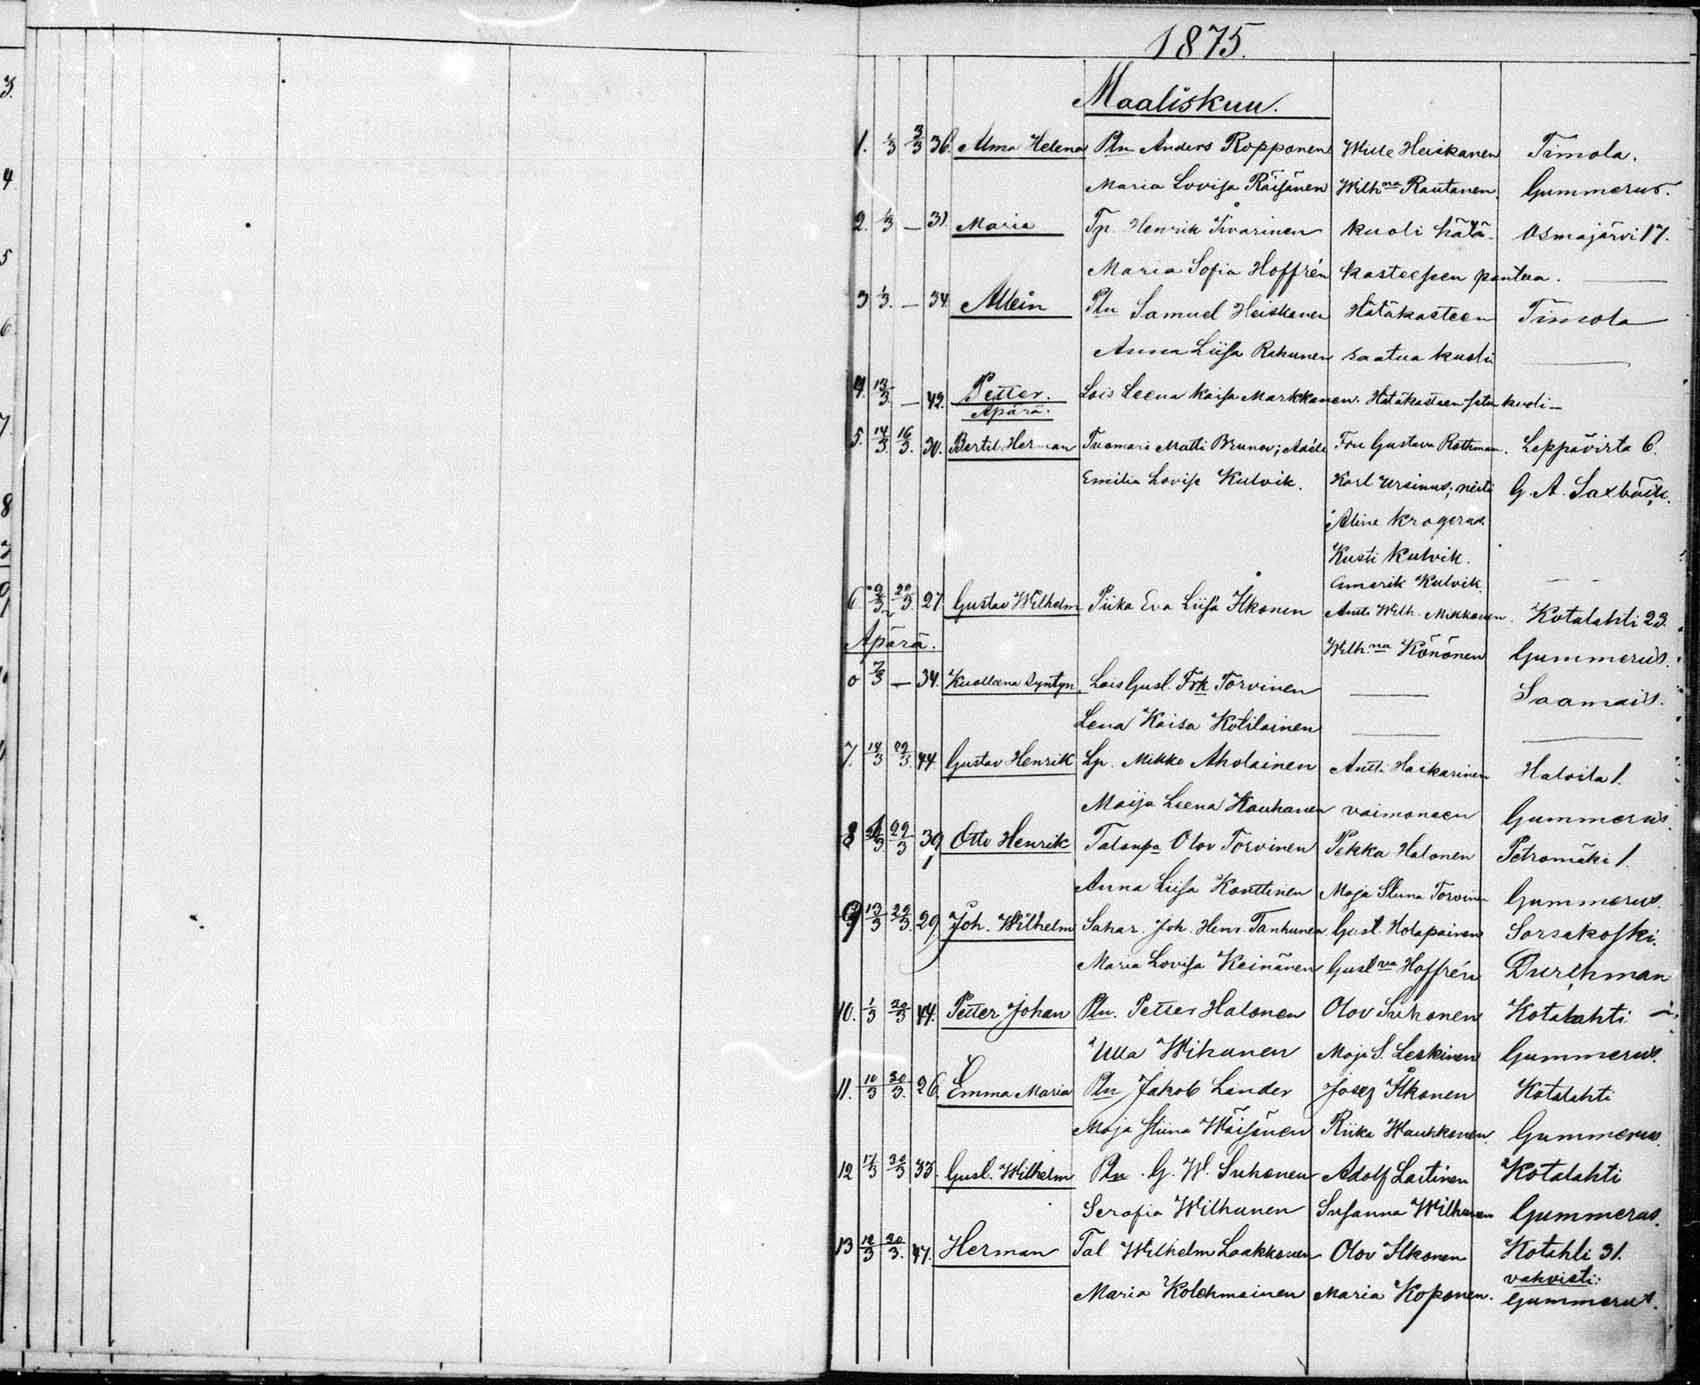 1875.
Maaliskuu.
1. 1/3 3/3 36. Alma Helena Pln Anders Ropponen Wille Heiskanen Timola.
Maria Lovisa Räisänen Wilh:na Rautanen Gummerus.
2. 1/3 — 31 Maria Tp. Henrik Tivarinen kuoli hätä- Osmajärvi 17.
Maria Sofia Hoffrén kasteesen pantua. —
3 1/3. — 34. Pln Samuel Heiskanen Hätäkasteen Timola
Anna Liisa Rahunen saatua kuoli —
4. 13/3 — 42. Petter. Lois Leena Kaisa Markkanen. Hätäkasteen kuoli —
Äpärä.
5. 14/3. 16/3. 30. Bertil Herman Tuomari Matti Brunov; Adéle Fru Gustava Rothman. Leppävirta 6.
Emilia Lovisa Kulvik. Karl Ursinus; neiti G. A. Saxbäck.
Aline Krogerus
Kusti Kulvik.
Kulvik.
6. 9/3 20/3. 27. Gustav Wilhelm Piika Eva Liisa Ikonen Antti Wilh. Mikkonen. Kotalahti 23.
Äpärä. Wilh:na Könönen Gummerus.
0 7/3 — 34. Kuolleena syntyn. Lois Gust. Frk Torvinen — Saamais.
Lena Kaisa Kotilainen — —
7. 14/3 22/3. 44. Gustav Henrik Lp. Mikko Aholainen Antti Haikarinen Halola 1.
Maija Leena Kauhanen vaimoneen Gummerus.
8 22/3 39, Otto Henrik Talonpa Olov Torvinen Pekka Halonen Petromäki 1.
Anna Liisa Konttinen Maja Stiina Torvinen Gummerus.
9 13/3 22/3. 29, Joh. Wilhelm Sahar. Joh. Henr. Tanhunen Gust. Holapainen Sorsakoski.
Maria Lovisa Keinänen Gust:va Hoffrén Durchman
10. 1/3 20/3 44. Petter Johan Pln. Petter Halonen Olov Suhonen Kotalahti —
Ulla Wihunen Maja S. Leskinen Gummerus.
11. 10/3 20/3. 26. Emma Maria Pln Jakob Lander Josef Ikonen Kotalahti
Maja Stiina Wäisänen Riika Gummerus.
12 17/3 20/3 33. Gust. Wilhelm Pln. G. W. Suhonen Adolf Laitinen Kotalahti
Serafia Wilhunen Susanna Wilhunen Gummerus.
13 12/3 20/3. 41. Herman Tal Wilhelm Laakkonen Olov Ikonen Kotahti 31.
vahvisti:
Maria Kolehmainen Maria Koponen. Gummerus.